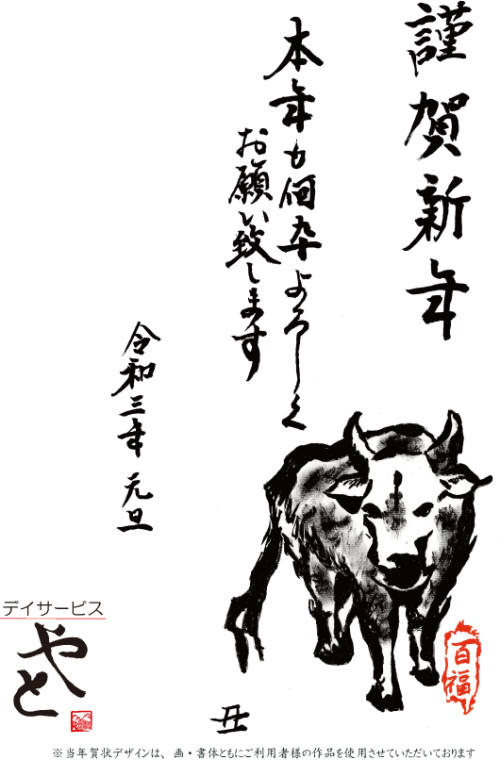 謹賀新年
本年も何卒よろしく
お願い致します
令和三年 元旦
デイサービス
やと
百福
丑
※当年賀状デザインは、画・書体ともにご利用者様の作品を使用させていただいております